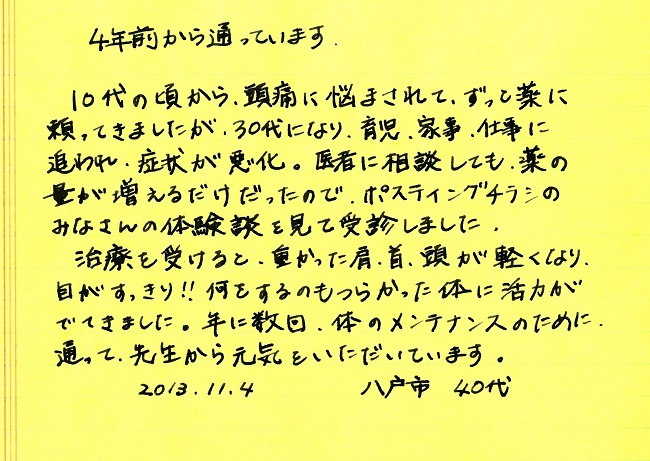 4年前から通っています.
10代の頃から、頭痛に悩まされて、ずっと薬に
頼ってきましたが、30代になり、育児、家事、仕事に
追われ、症状が悪化。医者に相談しても、薬の
量が増えるだけだったので、ポスティングチラシの
みなさんの体験談を見て受診しました.
治療を受けると、重かった肩、首、頭が軽くなり、
目がすっきり!!何をするのもつらかった体に活力が
でてきました。年に数回、体のメンテナンスのために、
通って、先生から元気をいただいています。
2013.11.4 八戸市 40代